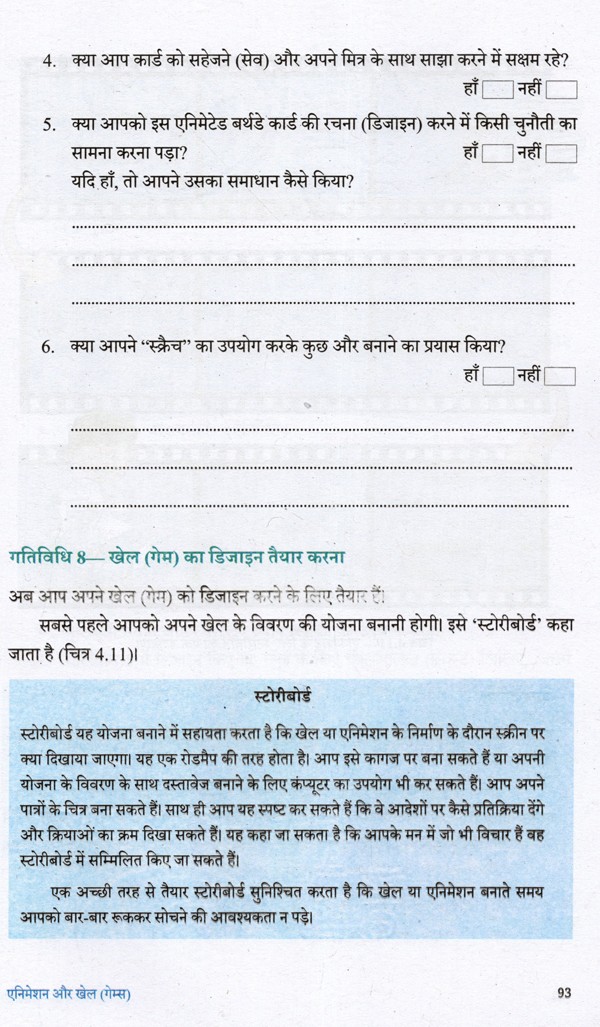 4. क्या आप कार्ड को सहेजने (सेव) और अपने मित्र के साथ साझा करने में सक्षम रहे?
हाँ नहीं
5. क्या आपको इस एनिमेटेड बर्थडे कार्ड की रचना (डिजाइन) करने में किसी चुनौती का
सामना करना पड़ा? हाँ नहीं
यदि हाँ, तो आपने उसका समाधान कैसे किया?
6. क्या आपने “स्क्रैच” का उपयोग करके कुछ और बनाने का प्रयास किया?
हाँ नहीं
गतिविधि 8— खेल (गेम) का डिजाइन तैयार करना
अब आप अपने खेल (गेम) को डिजाइन करने के लिए तैयार हैं।
सबसे पहले आपको अपने खेल के विवरण की योजना बनानी होगी। इसे ‘स्टोरीबोर्ड’ कहा
जाता है (चित्र 4.11)।
स्टोरीबोर्ड
स्टोरीबोर्ड यह योजना बनाने में सहायता करता है कि खेल या एनिमेशन के निर्माण के दौरान स्क्रीन पर
क्या दिखाया जाएगा। यह एक रोडमैप की तरह होता है। आप इसे कागज पर बना सकते हैं या अपनी
योजना के विवरण के साथ दस्तावेज बनाने के लिए कंप्यूटर का उपयोग भी कर सकते हैं। आप अपने
पात्रों के चित्र बना सकते हैं। साथ ही आप यह स्पष्ट कर सकते हैं कि वे आदेशों पर कैसे प्रतिक्रिया देंगे
और क्रियाओं का क्रम दिखा सकते हैं। यह कहा जा सकता है कि आपके मन में जो भी विचार हैं वह
स्टोरीबोर्ड में सम्मिलित किए जा सकते हैं।
एक अच्छी तरह से तैयार स्टोरीबोर्ड सुनिश्चित करता है कि खेल या एनिमेशन बनाते समय
आपको बार-बार रूककर सोचने की आवश्यकता न पड़े।
एनिमेशन और खेल (गेम्स) 93